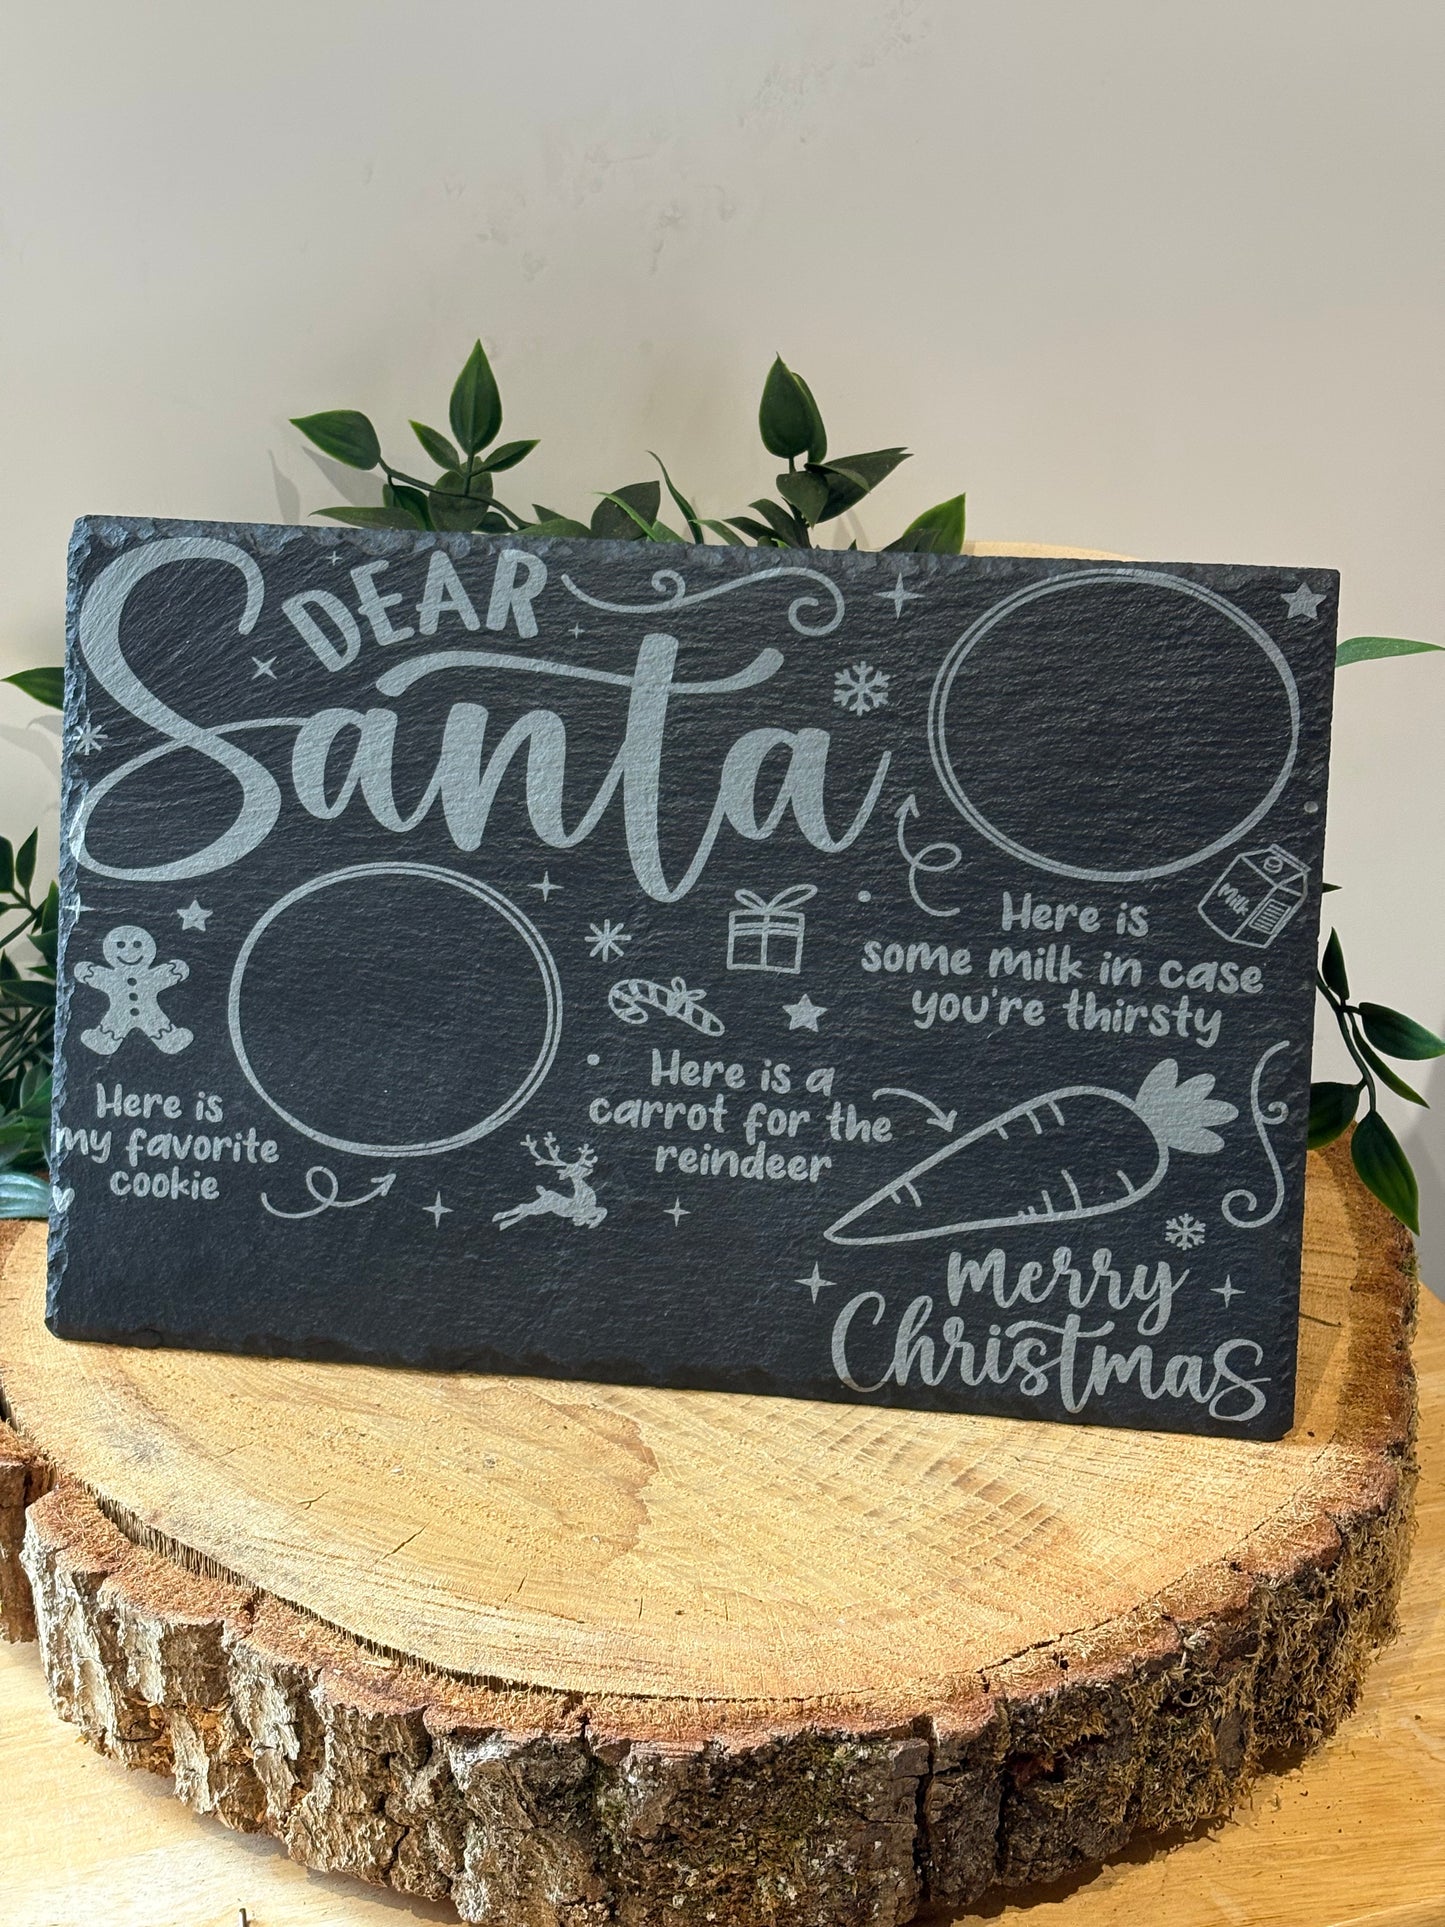 DEAR
Santa
Here is
some milk in case
you're thirsty
Milk
Here is
my favorite
cookie
Here is a
carrot for the
reindeer
Merry
Christmas